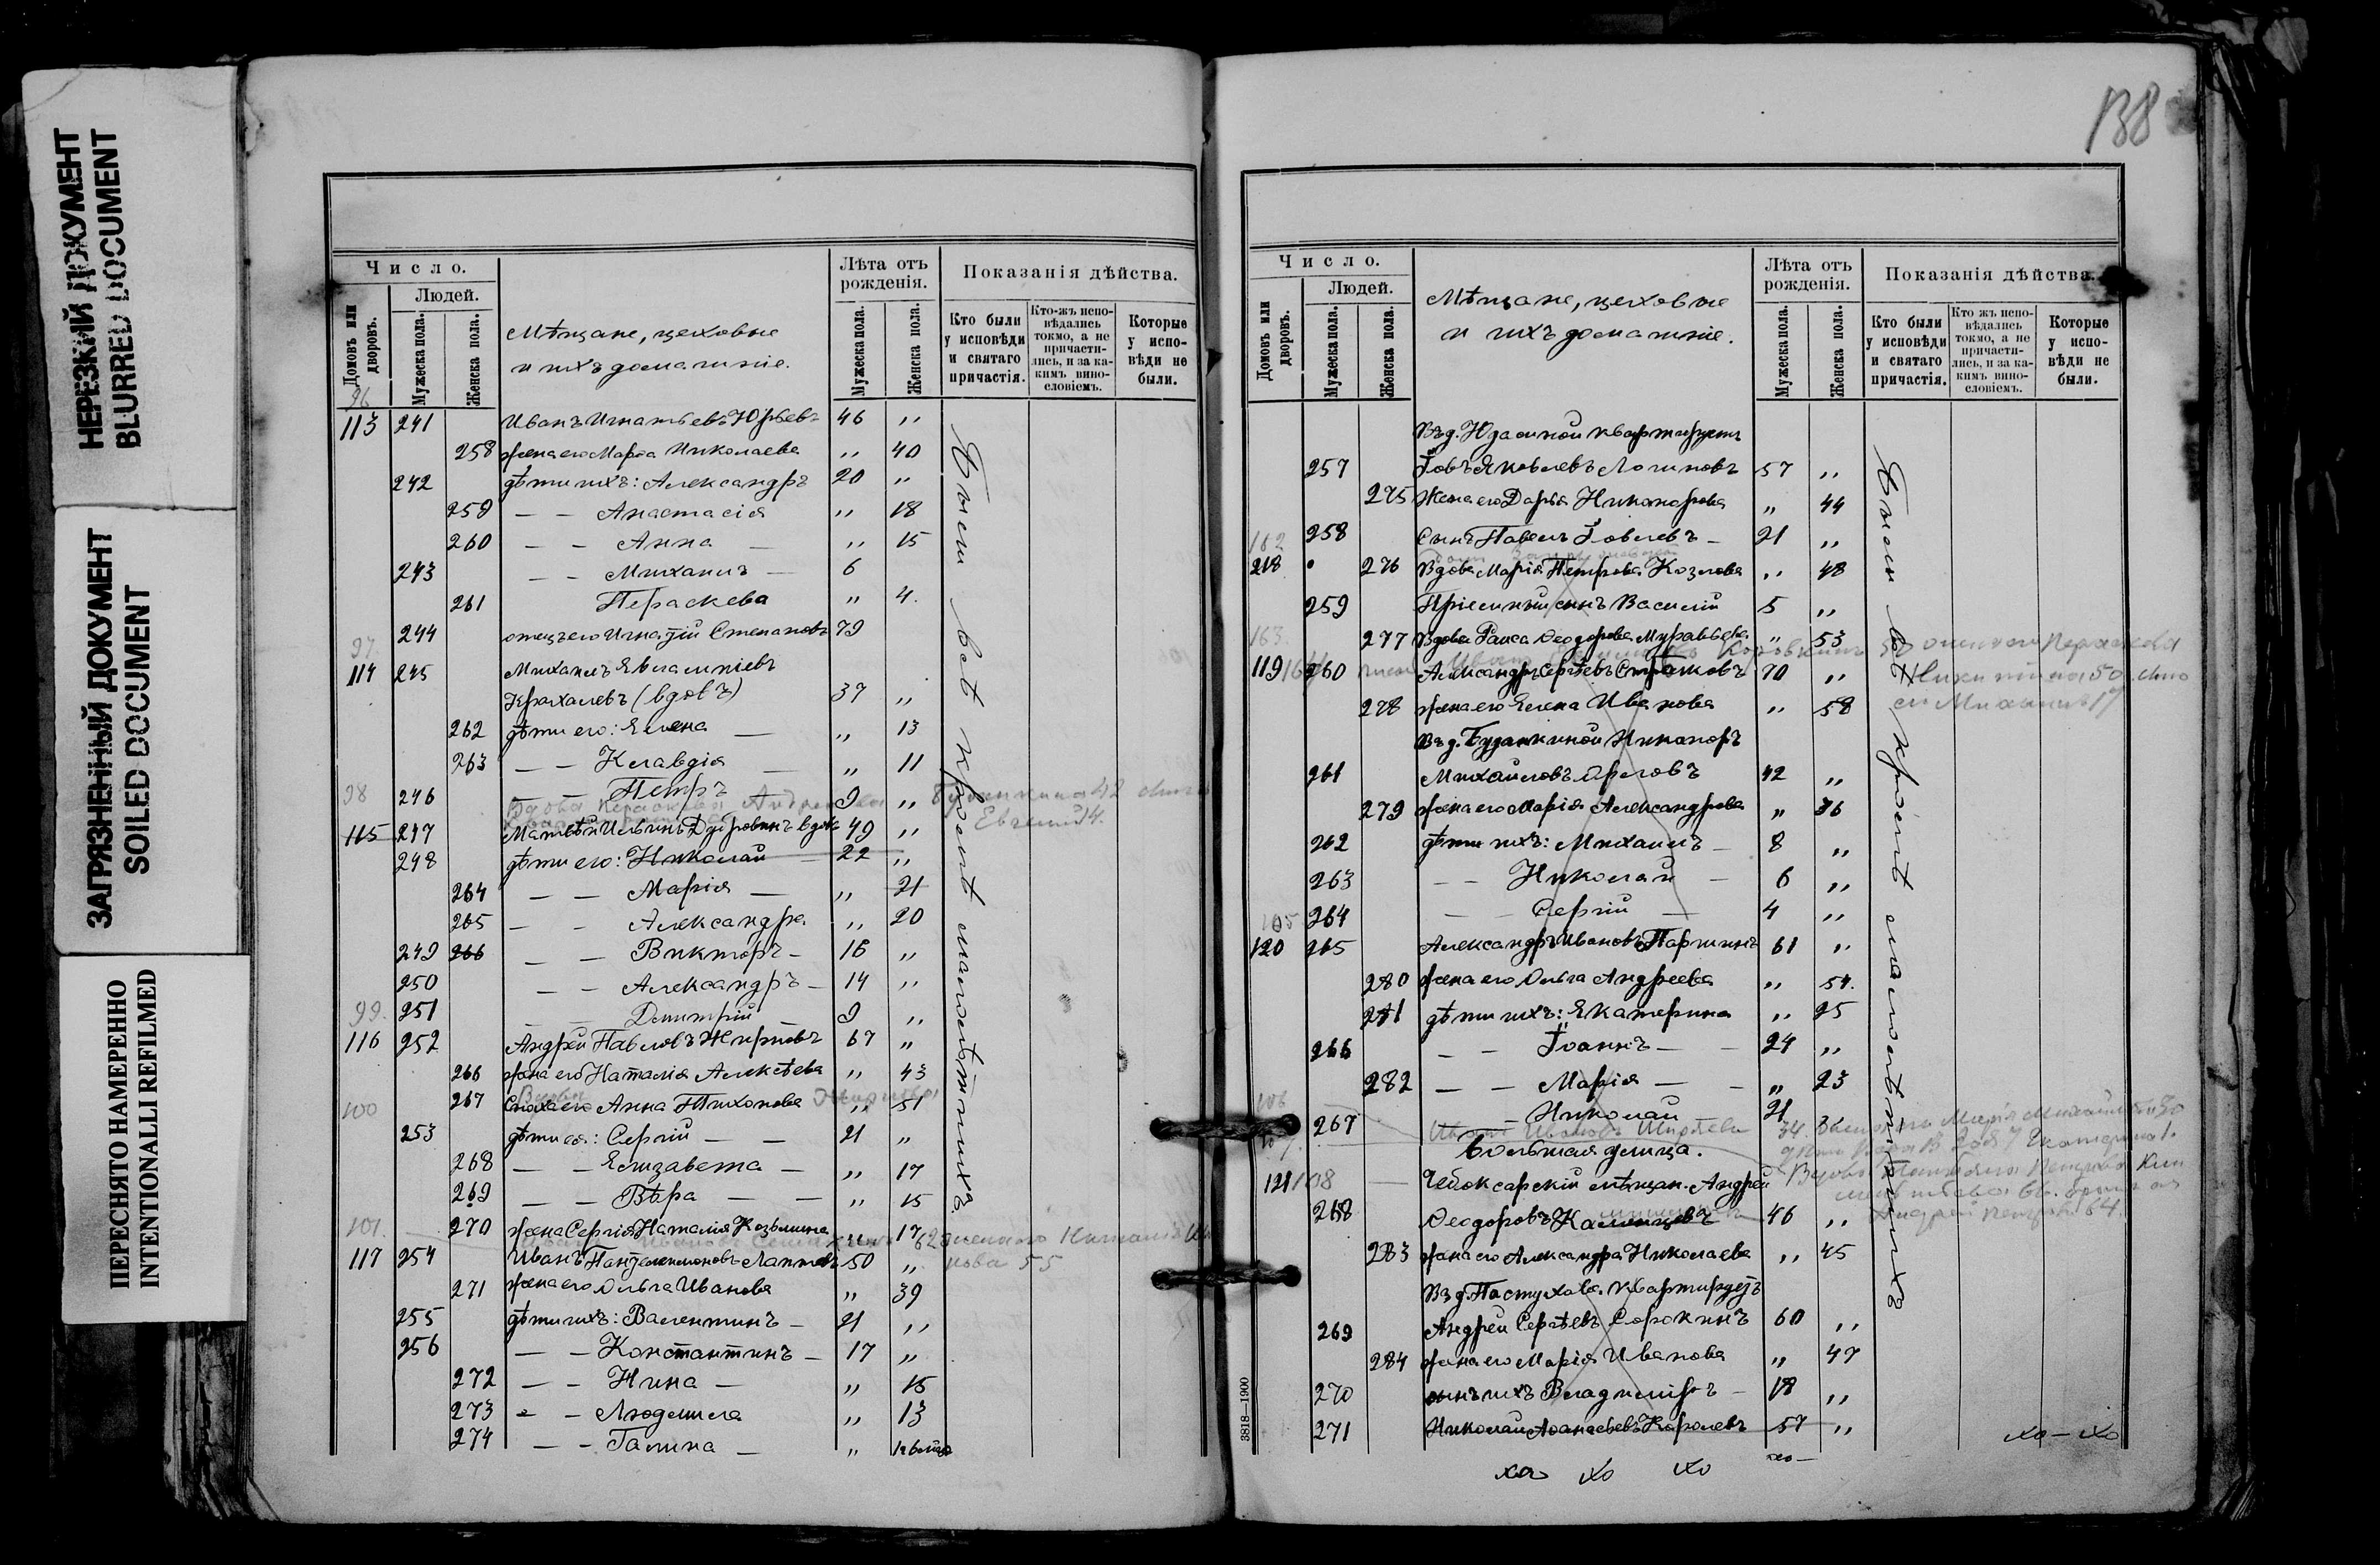 НЕРЕЗКИЙ ДОКУМЕНТ
BLURRED DOCUMENT
ЗАГРЯЗНЕННЫЙ ДОКУМЕНТ
SOILED DOCUMENT
ПЕРЕСНЯТО НАМЕРЕННО
INTENTIONALLI REFILMED
Число.
Людей.
Домовъ или дворовъ.
Мужеска пола.
Женска пола.
Мѣщане, цеховые
и ихъ домашніе.
Лѣта отъ рожденія.
Мужеска пола.
Женска пола.
Показанія дѣйства.
Кто были у исповѣди и святаго причастія.
Кто-жъ исповѣдались токмо, а не причастились, и за какимъ винословіемъ.
Которые у исповѣди не были.
96
113 241 Иванъ Игнатьевъ Юрьевъ 46 „
258 жена его Марѳа Николаева „ 40
242 дѣти ихъ: Александръ 20 „
259 — — Анастасія „ 18
260 — — Анна — „ 15
243 — — Михаилъ — 6
261 Параскева „ 4.
244 отецъ его Игнатій Степановъ 79
97
114 245 Михаилъ Евлампіевъ
Крахалевъ (вдовъ) 37 „
262 дѣти его: Елена — „ 13
263 — — Клавдія — „ 11
98 246 — — Петръ — 9 „
Вдова Параскева 42
Евгеній 14.
115 247 Матвѣй Ильинъ вдовъ 49 „
248 дѣти его: Николай — 22 „
264 — — Марія — „ 21
265 — — Александра „ 20
249 266 — — Викторъ — 16 „
250 — — Александръ — 14 „
99. 251 — — Димитрій — 9 „
116 252 Андрей Павловъ Жирновъ 67 „
266 жена его Наталія Алексѣева „ 43
Вдова
100 267 Сноха его Анна Тихонова „ 51
253 дѣти ея: Сергій — — 21 „
268 — — Елизавета — „ 17
269 — — Вѣра — — „ 15
101. 270 жена Сергія Наталія Козьмина „ 17
62 жена его
55
117 254 Иванъ Пантелеимоновъ Лаптевъ 50 „
271 жена его Ольга Иванова „ 39
255 дѣти ихъ: Валентинъ — 21 „
256 — — Константинъ — 17 „
272 — — Нина — „ 15
273 — — Людмила „ 13
274 — — Галина — „
Были всѣ кромѣ малолѣтнихъ
138
Число.
Людей.
Домовъ или дворовъ.
Мужеска пола.
Женска пола.
Мѣщане, цеховые
и ихъ домашніе.
Лѣта отъ рожденія.
Мужеска пола.
Женска пола.
Показанія дѣйства.
Кто были у исповѣди и святаго причастія.
Кто жъ исповѣдались токмо, а не причастились, и за какимъ винословіемъ.
Которые у исповѣди не были.
Въ д. Юдаиной
257 Іовъ Яковлевъ Логиновъ 57 „
275 Жена его Дарья Никанорова „ 44
102 258 Сынъ Павелъ Іовлевъ — 21 „
218 276 Вдова Марія Петрова Козлова „ 48
259 Пріемный сынъ Василій 5 „
103. 277 Вдова Раиса Ѳеодорова Муравьева „ 53
119 260 Александръ Сергѣевъ 70 „
50
Михаилъ 17
278 жена его Елена Иванова „ 58
Въ д. Буданкиной Никаноръ
261 Михайловъ Орловъ 42 „
279 жена его Марія Александрова „ 36
262 дѣти ихъ: Михаилъ — 8 „
263 — — Николай — 6 „
105 264 — — Сергій — 4 „
120 265 Александръ Ивановъ Паршинъ 61 „
280 жена его Ольга Андреева „ 54.
281 дѣти ихъ: Екатерина „ 25
266 — — Іоаннъ — — 24 „
282 — — Марія — — „ 23
106
267 — Николай 21
Иванъ Ивановъ
34.
Большая улица.
121 108 Чебоксарскій мѣщан. Андрей
268 Ѳеодоровъ 46 „
64.
283 жена его Александра Николаева „ 45
Въ д. Пастухова. Квартируетъ
269 Андрей Сергѣевъ Сорокинъ 60 „
284 жена его Марія Иванова „ 47
270 сынъ ихъ Владиміръ — 18 „
271 Николай Аѳанасьевъ Королевъ 57 „
Были всѣ кромѣ малолѣтнихъ
3818—1900